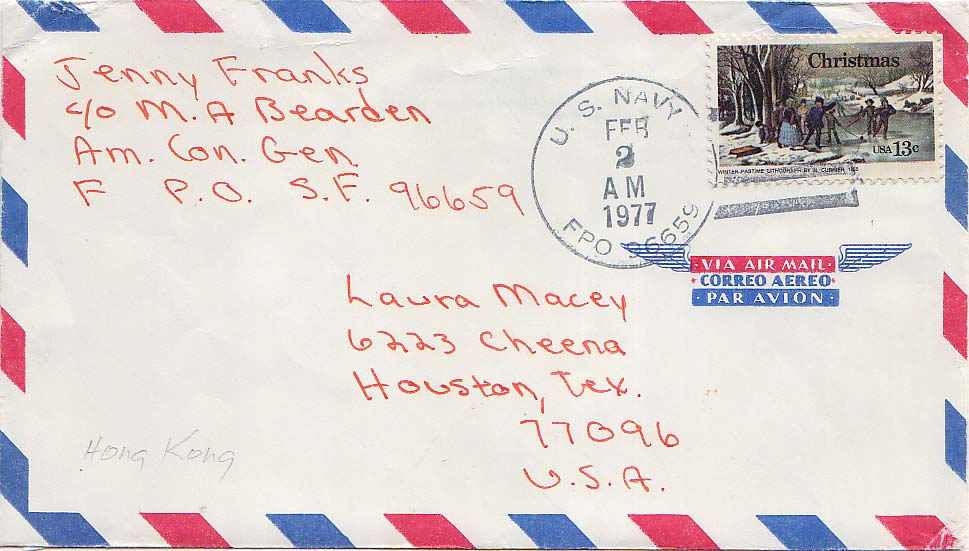 Jenny Franks
c/o M. A Bearden
Am. Con. Gen
F P.O. S.F. 96659
U. S. NAVY
FEB
2
AM
1977
FPO 96659
Christmas
USA 13c
WINTER PASTIME LITHOGRAPH BY N. CURRIER, 1855
VIA AIR MAIL
CORREO AEREO
PAR AVION
Laura Macey
6223 Cheena
Houston, Tex.
77096
U.S.A.
Hong Kong